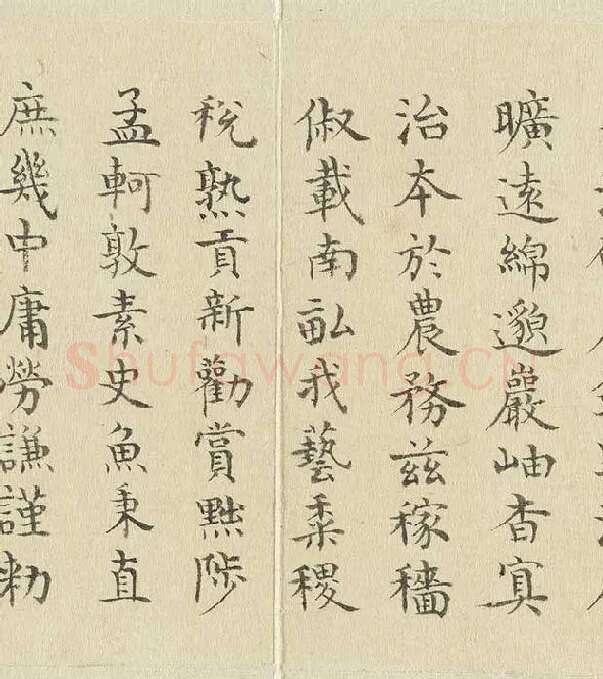 曠遠綿邈巖岫杳冥
治本於農務茲稼穡
俶載南畝我藝黍稷
稅熟貢新勸賞黜陟
孟軻敦素史魚秉直
庶幾中庸勞謙謹勑
Shufawang.CN